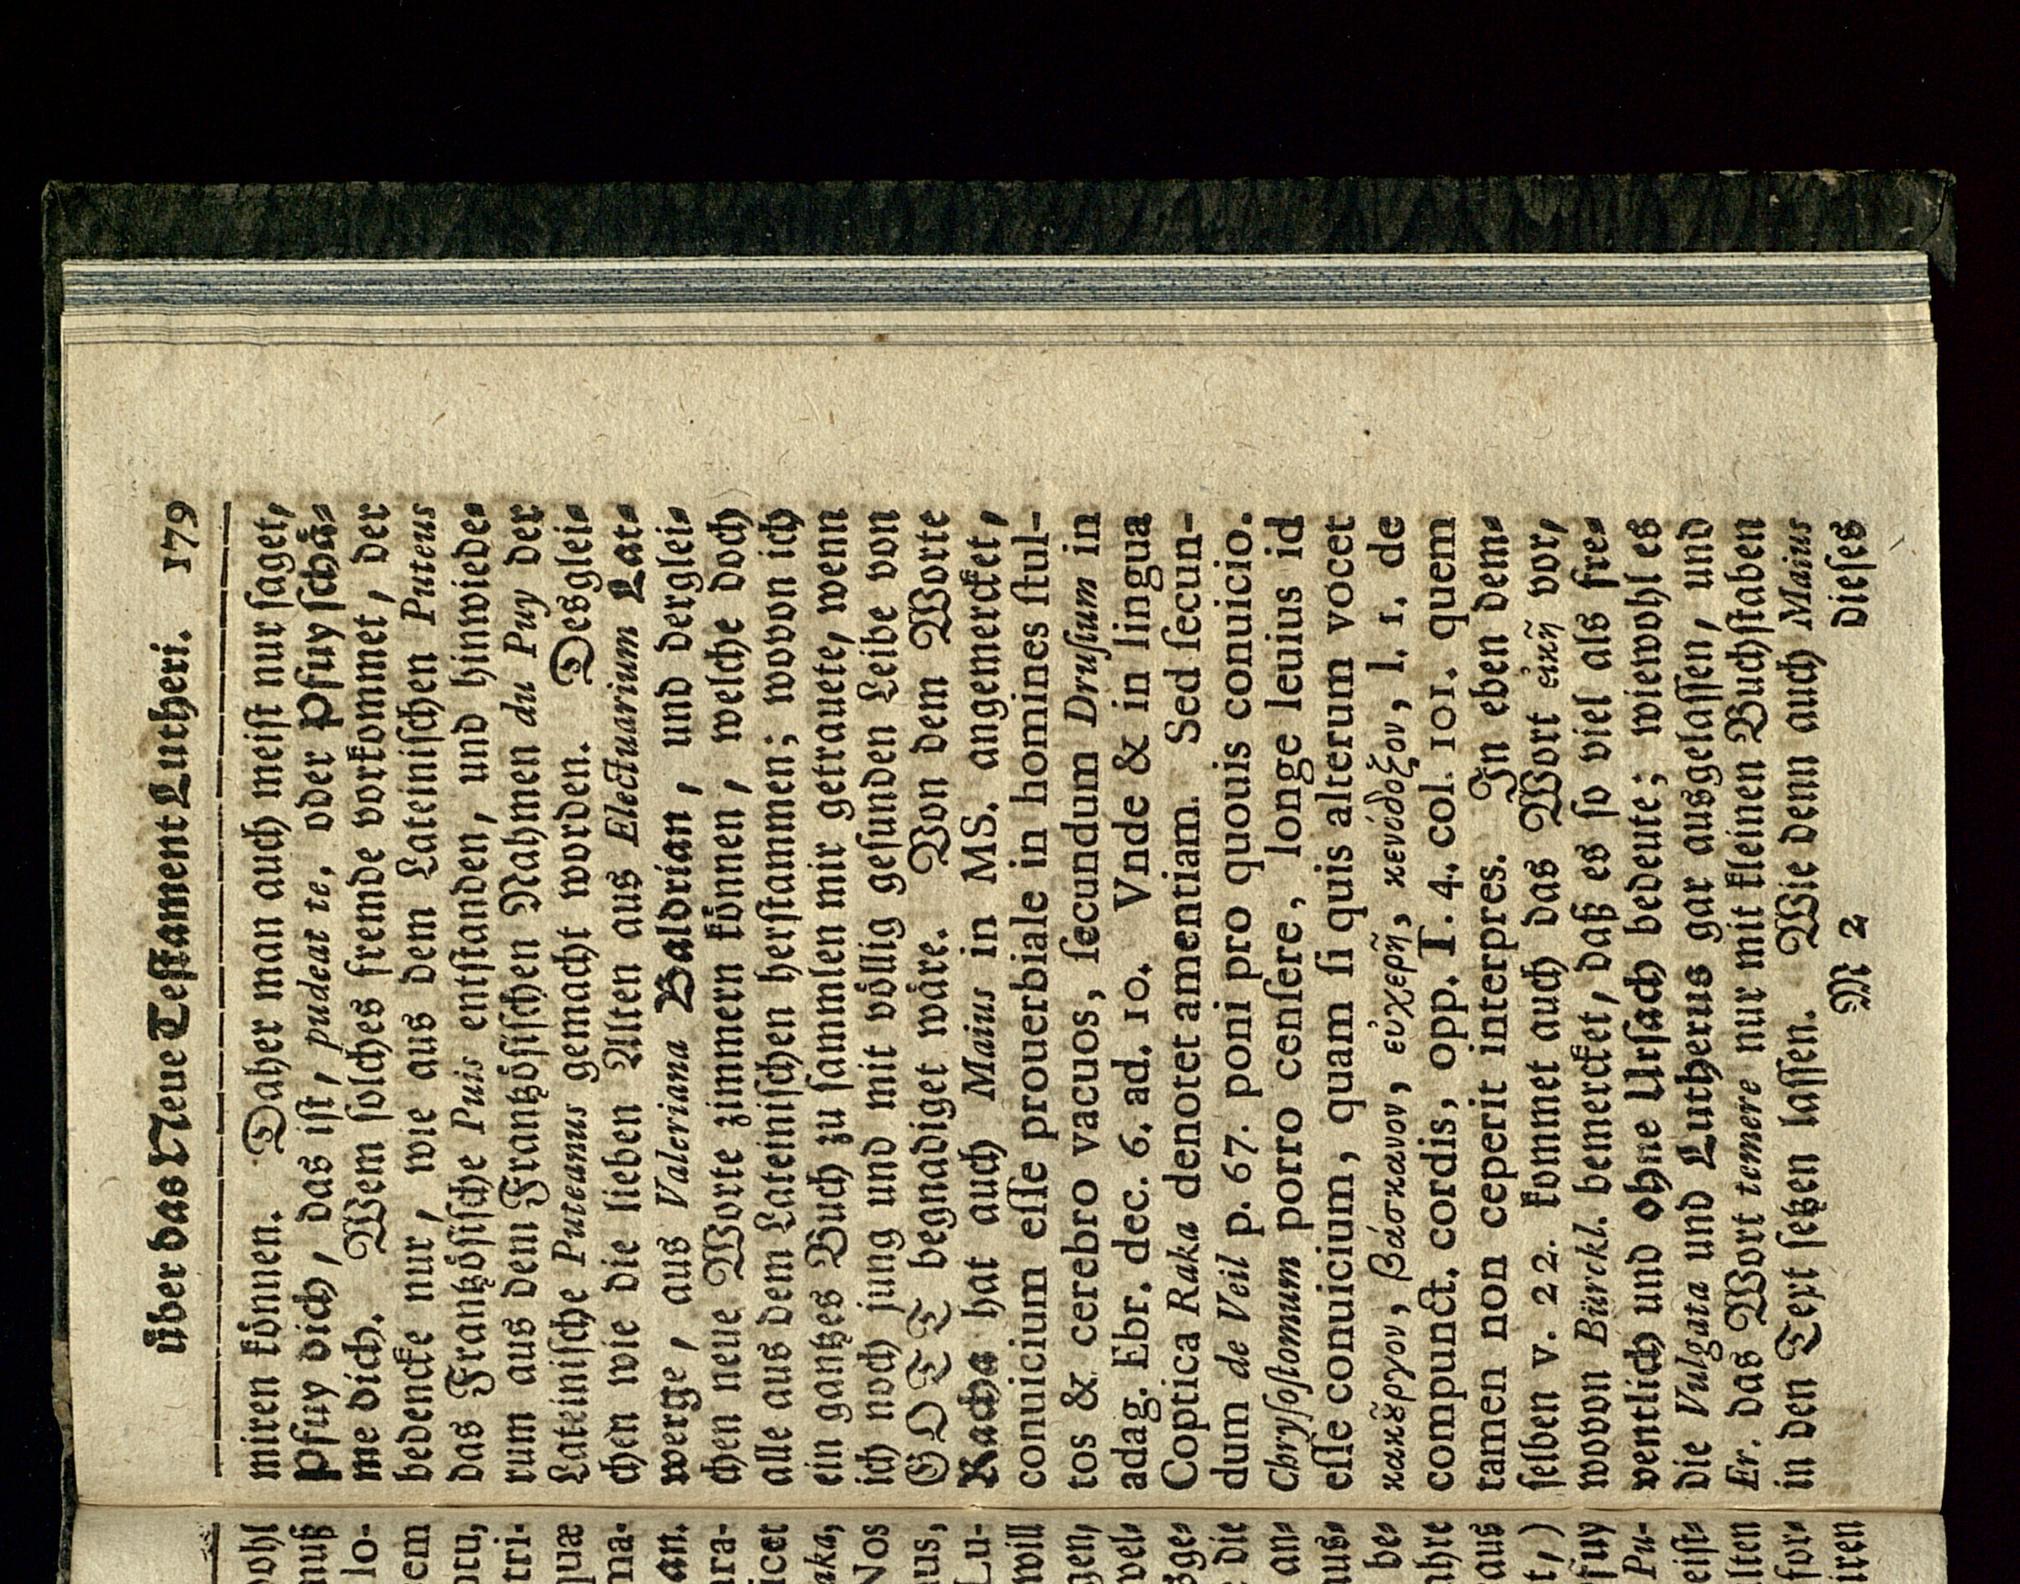 über das Neue Testament Lutheri. 179
miren können. Daher man auch meist nur saget,
Pfuy dich, das ist, pudeat te, oder Pfuy schä-
me dich. Wem solches fremde vorkommet, der
bedencke nur, wie aus dem Lateinischen Puteus
das Frantzösische Puis entstanden, und hinwiede-
rum aus dem Frantzösischen Nahmen du Puy der
Lateinische Puteanus gemacht worden. Desglei-
chen wie die lieben Alten aus Electuarium Lat-
werge, aus Valeriana Baldrian, und derglei-
chen neue Worte zimmern können, welche doch
alle aus dem Lateinischen herstammen; wovon ich
ein gantzes Buch zu sammlen mir getrauete, wenn
ich noch jung und mit völlig gesunden Leibe von
GOTT begnadiget wäre. Von dem Worte
Racha hat auch Maius in MS. angemercket,
conuicium esse prouerbiale in homines stul-
tos & cerebro vacuos, secundum Drusium in
adag. Ebr. dec. 6. ad. 10. Vnde & in lingua
Coptica Raka denotet amentiam. Sed secun-
dum de Veil p. 67. poni pro quouis conuicio.
Chrysostomum porro censere, longe leuius id
esse conuicium, quam si quis alterum vocet
κακȣ͂ργον, βάσκανον, εὐχερῆ, κενόδοξον, l. 1. de
compunct. cordis, opp. T. 4. col. 101. quem
tamen non ceperit interpres. In eben dem-
selben v. 22. kommet auch das Wort εἰκῆ vor,
wovon Bürckl. bemercket, daß es so viel als fre-
ventlich und ohne Ursach bedeute; wiewohl es
die Vulgata und Lutherus gar ausgelassen, und
Er. das Wort temere nur mit kleinen Buchstaben
in den Text setzen lassen. Wie denn auch Maius
M 2 dieses